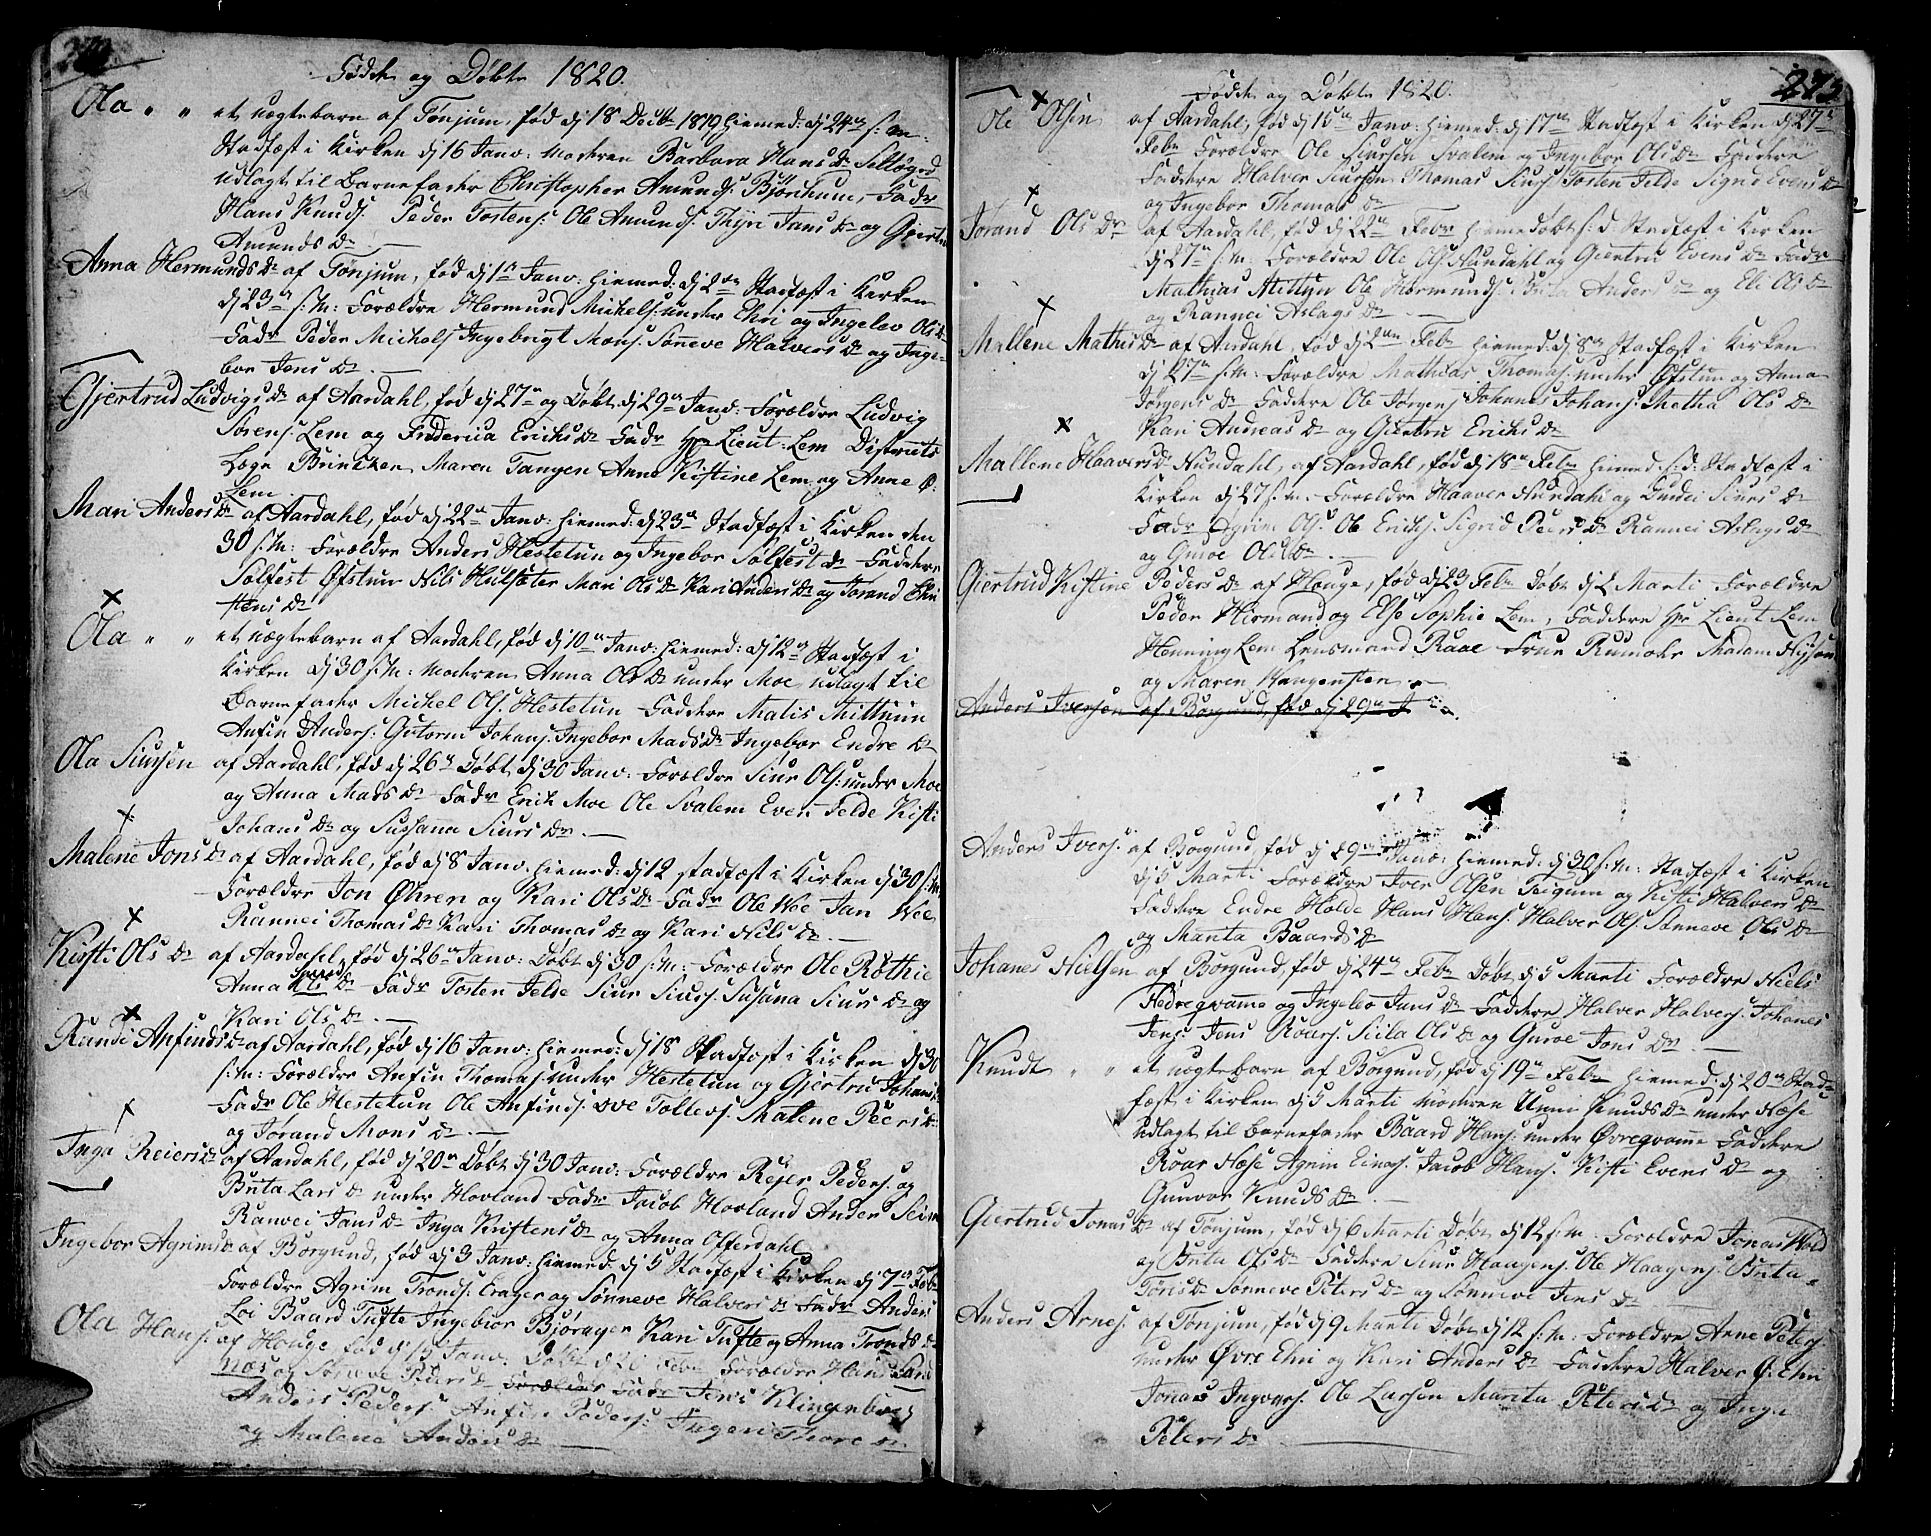 Fødde og Døbte 1820.
Ola " " et uægtebarn af Tønjum, fød dj 18 Decbr 1819 hiemed: dj 24de s: m:
Stadfæst i Kirken dj 16 Janv: Moderen Barbara Hans Dr
udlagt til Barnefader Christopher Amunds: Bjørkum, Fadr
Hans Knuds: Peder Tostens: Ole Amunds: Thyri Jans Dr og Giertru
Amunds Dr
Anna Hermunds Dr af Tønjum, fød dj 1st Janv: hiemed: dj 2den Stadfæst i Kirken
dj 23de s: m: Forældre Hermund Michels: under Ehri og Ingelev Ols Dr
Fadr Peder Michels: Ingebrigt Mons: Sønneve Halvers Dr og Inge-
bor Jens Dr
Gjertrud Ludvigs Dr af Aardahl, fød dj 27de og Døbt dj 29de Janv: Forældre Ludvig
Sørens: Lem og Friderica Erichs Dr Fadr Hr Lieut: Lem Districts
Læge Brincker Maren Tangen Anne Kistine Lem og Anne
Lem
Mari Anders Dr af Aardahl, fød dj 22de Janv: hiemed: dj 23de Stadfæst i Kirken den
30 s: m: Forældre Anders Hestetun og Ingebor Sølfest Dr Faddere
Sølfest Øfstun Nils Hulsæter Mari Ols Dr Kari Anders Dr og Torand Chri
stens Dr
Ola " " et uægtebarn af Aardahl, fød dj 10de Janv: hiemed: dj 12de Stadfæst i
Kirken dj 30 s: m: Moderen Anna Ols Dr under Moe, udlagt til
Barnefader Michel Ols: Hestetun Faddere Matis Mittuun
Anfin Anders: Gutorm Johans: Ingebor Mads Dr Ingebor Endre Dr
Ola Siursen af Aardahl, fød dj 26de Døbt dj 30 Janv: Forældre Siur Ols: under Moe
og Anna Mads Dr Fadr Erich Moe Ole Svalem Even Felde Kisti
Johans Dr og Sussana Siurs Dr
Malene Jons Dr af Aardahl, fød dj 8 Janv: hiemed: dj 12 stadfæst i Kirken dj 30 s: m:
Forældre Jon Øhren og Kari Ols Dr Fadr Ole Wee Jan Wee,
Rannei Thomas Dr Kari Thomas Dr og Kari Nils Dr
Kisti Ols Dr af Aardahl, fød dj 26de Janv: Døbt dj 30 s: m: Forældre Ole Røthie
Anna Dr Fadr Tosten Felde Siur Siurs: Susana Siurs Dr og
Kari Ols Dr
Randi Anfinds Dr af Aardahl, fød dj 16 Janv: hiemed: dj 18 Stadfæst i Kirken dj 30
s: m: Forældre Anfin Thomas: under Hestetun og Gjertru Johans Dr
Fadr Ole Hestetun Ole Anfinds: Ove Tollevs: Malene Peers Dr
og Torand Mons Dr
Inga Reiers Dr af Aardahl, fød dj 20de Døbt dj 30 Janv: Forældre Rejer Peders: og
Brita Lars Dr under Hovland Fadr Jacob Hovland Anders
Ranvei Jans Dr Inga Kristens Dr og Anna Offerdahl
Ingebor Agrims Dr af Borgund, fød dj 3 Janv: hiemed: dj 5 Stadfæst i Kirken dj 7de Feb:
Forældre Agrim Tronds: Erager og Sønneve Halvers Dr Fadr Anders
Loi Baard Tufte Ingebior Bjørager Kari Tufte og Anna Tronds Dr
Ola Hans: af Houge fød dj 15 Janv: Døbt dj 20 Febr Forældre Hans Sand
nos og Sønneve Peders Dr Forældre Fadr Jens Klingenberg
Anders Peders: Anfin Peders: Ingeri Thore Dr
og Malene Anders Dr
273
Fødde og Døbte 1820.
Ole Olsen af Aardahl, fød dj 15de Janv: hiemed: dj 17de Stadfæst i Kirken dj 27de
Febr Forældre Ole Siursen Svalem og Ingebor Ols Dr Faddere
Faddere Halver Siursen Thomas Siurs: Tosten Felde Signe Evens Dr
og Ingebor Thomas Dr
Torand Ols Dr af Aardahl, fød dj 22de Febr hiemedøbt s: d: Stadfæst i Kirken
dj 27de s: m: Forældre Ole Ols: Nundahl og Giertru Evens Dr Fadr
Mathias Mittun Ole Hermunds: Brita Anders Dr og Eli Ols Dr
og Rannei Aslags Dr
Mallene Mathis Dr af Aardahl, fød dj 2den Febr hiemed: dj 8de Stadfæst i Kirken
dj 27de s: m: Forældre Mathias Thomas: under Øfstun og Anna
Jørgens Dr Faddere Ole Jørgens: Johanes Johans: Metha Ols Dr
Kari Andreas Dr og Giertru Erichs Dr
Mallene Haavers Dr Nundahl, af Aardahl, fød dj 18de Febr hiemed: s: d: Stadfæst i
Kirken dj 27 s: m: Forældre Haaver Nundahl og Siurs Dr
Fadr Ols: Ole Erichs: Sigrid Peers Dr Rannei Aslags Dr
og Guroe Ols Dr
Giertrud Kistine Peders Dr af Houge, fød dj 23 Febr Døbt dj 2 Marti Forældre
Peder Hirmand og Else Sophie Lem, Faddere Hr Lieut Lem
Henning Lem Lensmand Raae Frue Rumohr Madam
og Maren Krangensten
Anders Iversen af Borgund, fød dj 29de J
Anders Ivers: af Borgund, fød dj 29de Janv: hiemed: dj 30 s: m: Stadfæst i Kirken
dj 5 Marti Forældre Iver Olsen og Kisti Halvers Dr
Faddere Endre Holde Hans Hans: Halver Ols: Sønneve Ols Dr
og Marita Baards Dr
Johanes Nielsen af Borgund, fød dj 24de Febr Døbt dj 5 Marti Forældre Niels
Nedregvame og Ingeleo Jans Dr Faddere Halver Halvers: Johanes
Jens: Jens Roars: Siila Ols Dr og Guroe Jons Dr
Knudt " " et uægtebarn af Borgund, fød dj 19de Febr hiemed: dj 20de Stad-
fæst i Kirken dj 5 Marti Moderen Unni Knuds Dr under Næse
Udlagt til Barnefader Baard Hans: under Øvregvame Faddere
Roar Næse Agrim Einers: Jacob Hans: Kisti Evens Dr og
Gunvor Knuds Dr
Giertrud Jonas Dr af Tønjum, fød dj 6 Marti Døbt dj 12 s: m: Forældre Jonas Wold
og Brita Ols Dr Faddere Siur Haagens: Ole Haagens: Brita
Tøris Dr Sønneve Peters Dr og Sønneve Jens Dr
Anders Arnes: af Tønjum, fød dj 9 Marti Døbt dj 12 s: m: Forældre Arne Peters:
under Øvre Ehri og Kari Anders Dr Faddere Halver Ø: Ehri
Jonas Ingvers: Ole Larsen Marita Peters Dr og Inga
Peters Dr